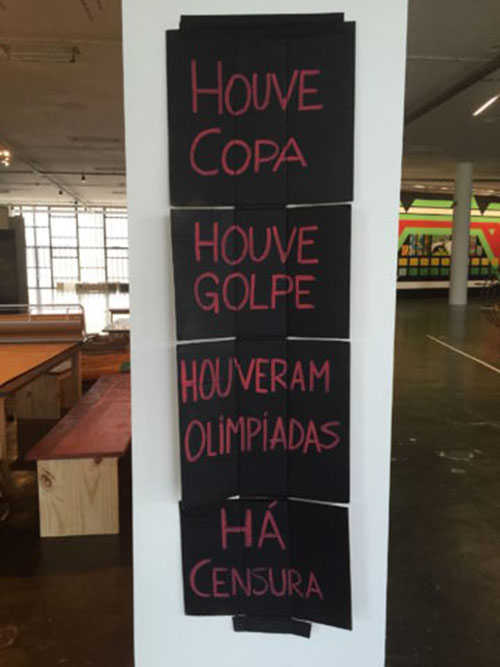 HOUVE
COPA
HOUVE
GOLPE
HOUVERAM
OLIMPÍADAS
HÁ
CENSURA